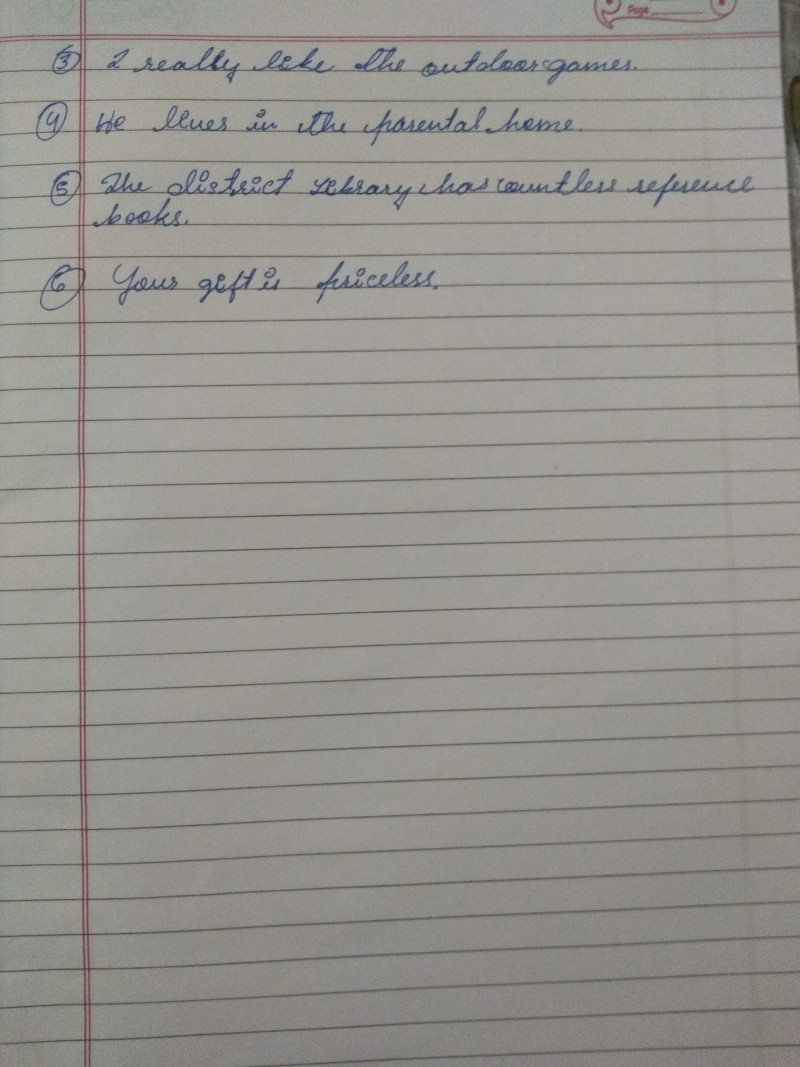 Page
③ I really like the outdoor games.
④ He lives in the parental home.
⑤ The district library has countless reference
books.
⑥ Your gift is priceless.